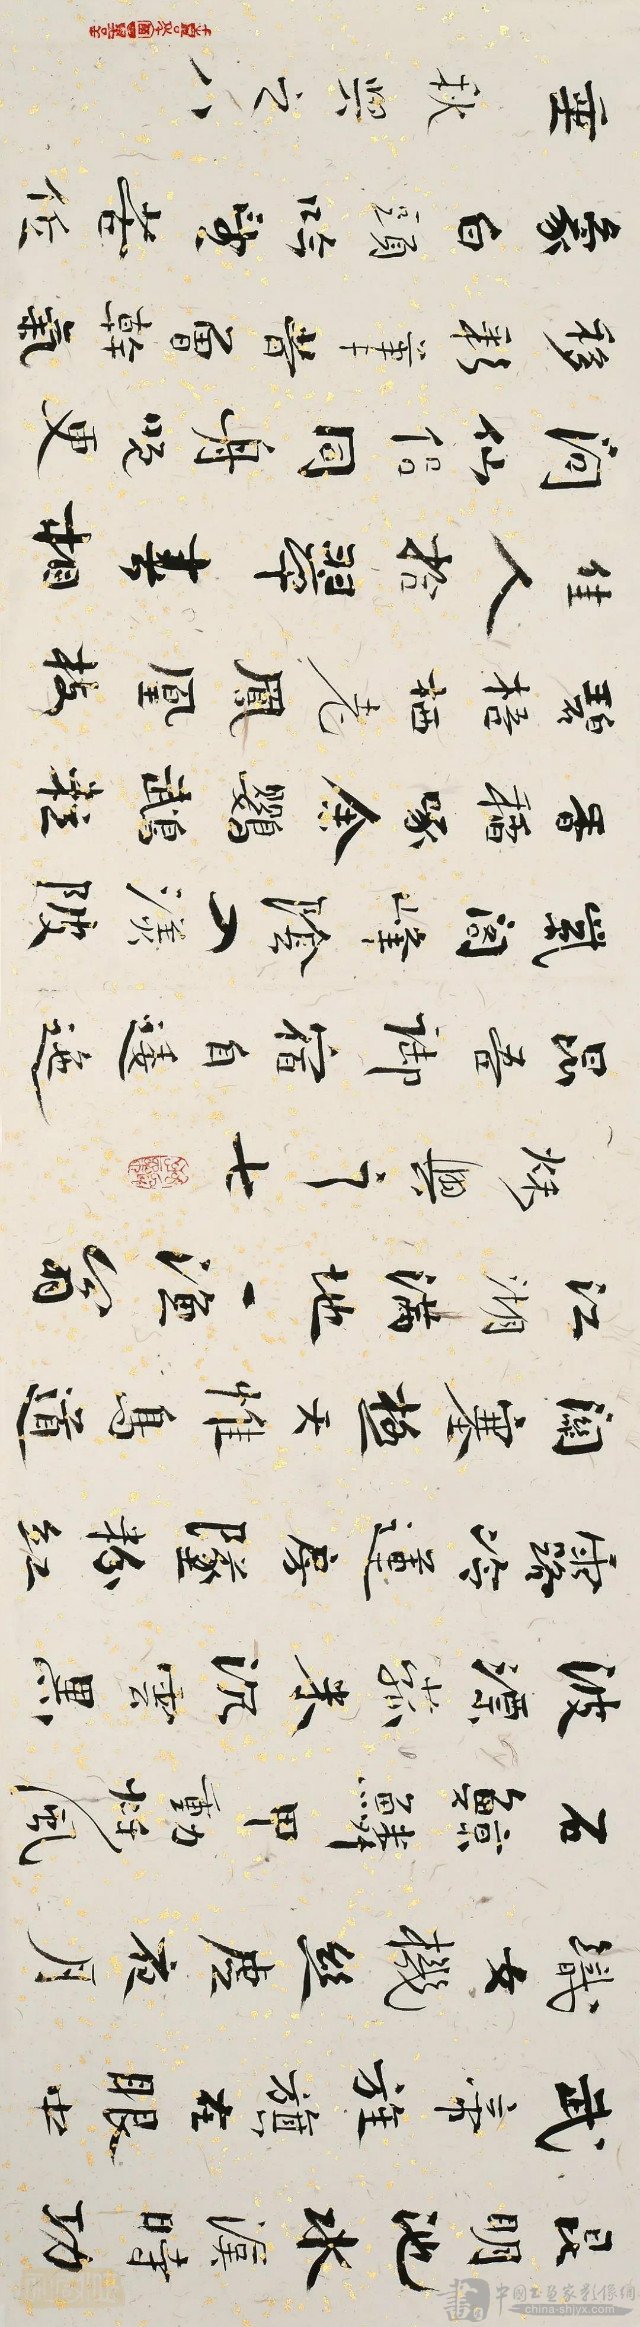 昆明池水漢時功
武帝旌旗在眼中
織女機絲虛夜月
石鯨鱗甲動秋風
波漂菰米沉雲黑
露冷蓮房墜粉紅
關塞極天惟鳥道
江湖滿地一漁翁
秋興之七
昆吾御宿自逶迤
紫閣峰陰入渼陂
香稻啄余鸚鵡粒
碧梧栖老鳳凰枝
佳人拾翠春相
問仙侣同舟晚更
移彩筆昔曾幹氣
象白頭吟望苦低
垂 秋興之八
中國書畫家影像網
china-shjyx.com